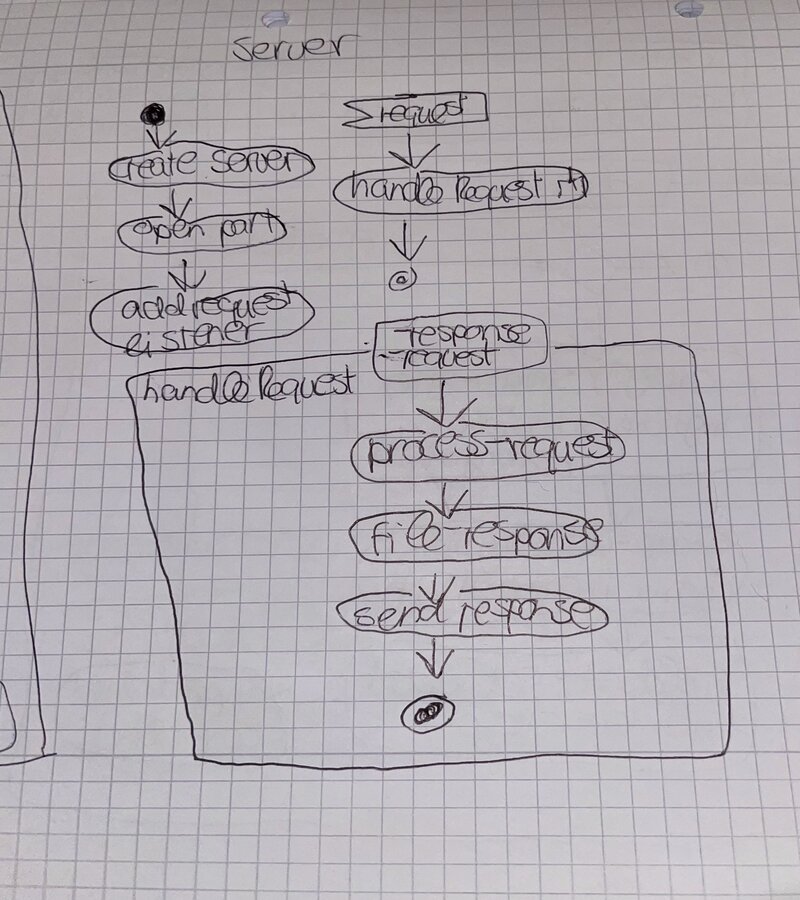 server
create server
open part
add request
listener
request
handle Request
response
request
handle Request
process request
file response
send response